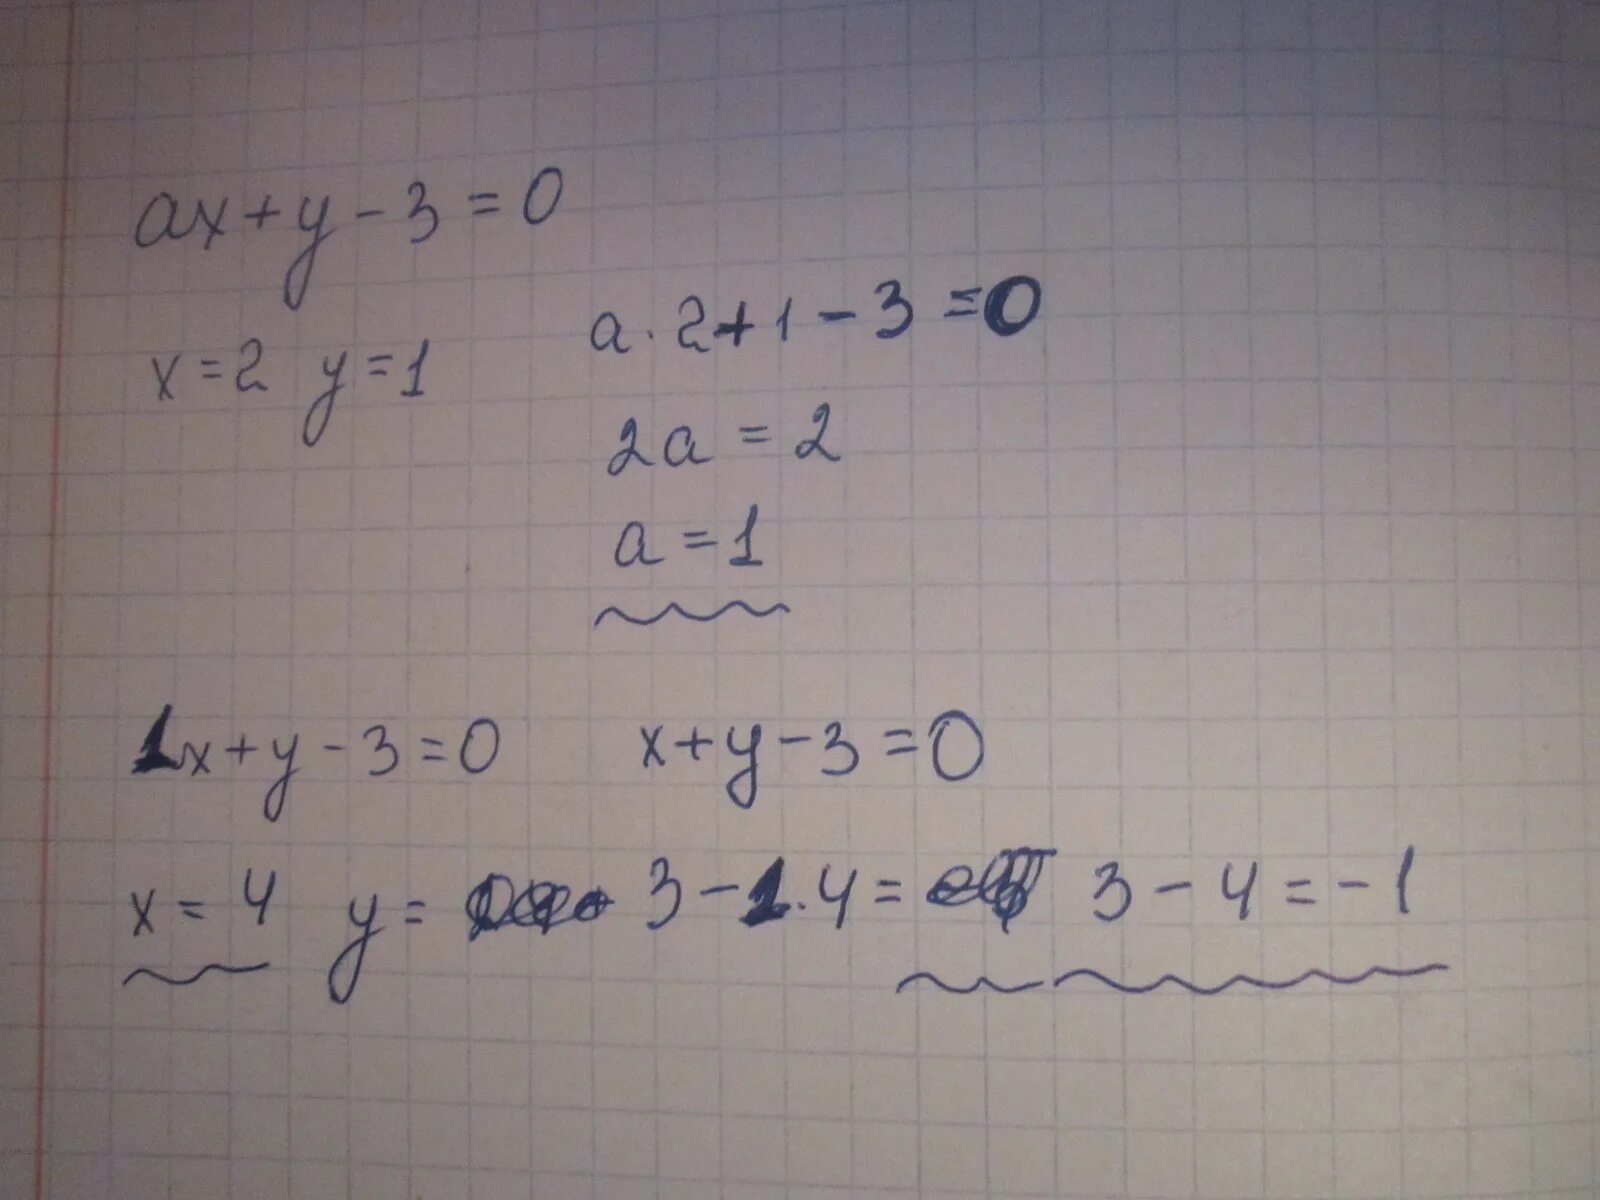 ax+y-3=0
x=2 y=1
a·2+1-3=0
2a=2
a=1
1x+y-3=0 x+y-3=0
x=4 y= 3-1·4= 3-4=-1